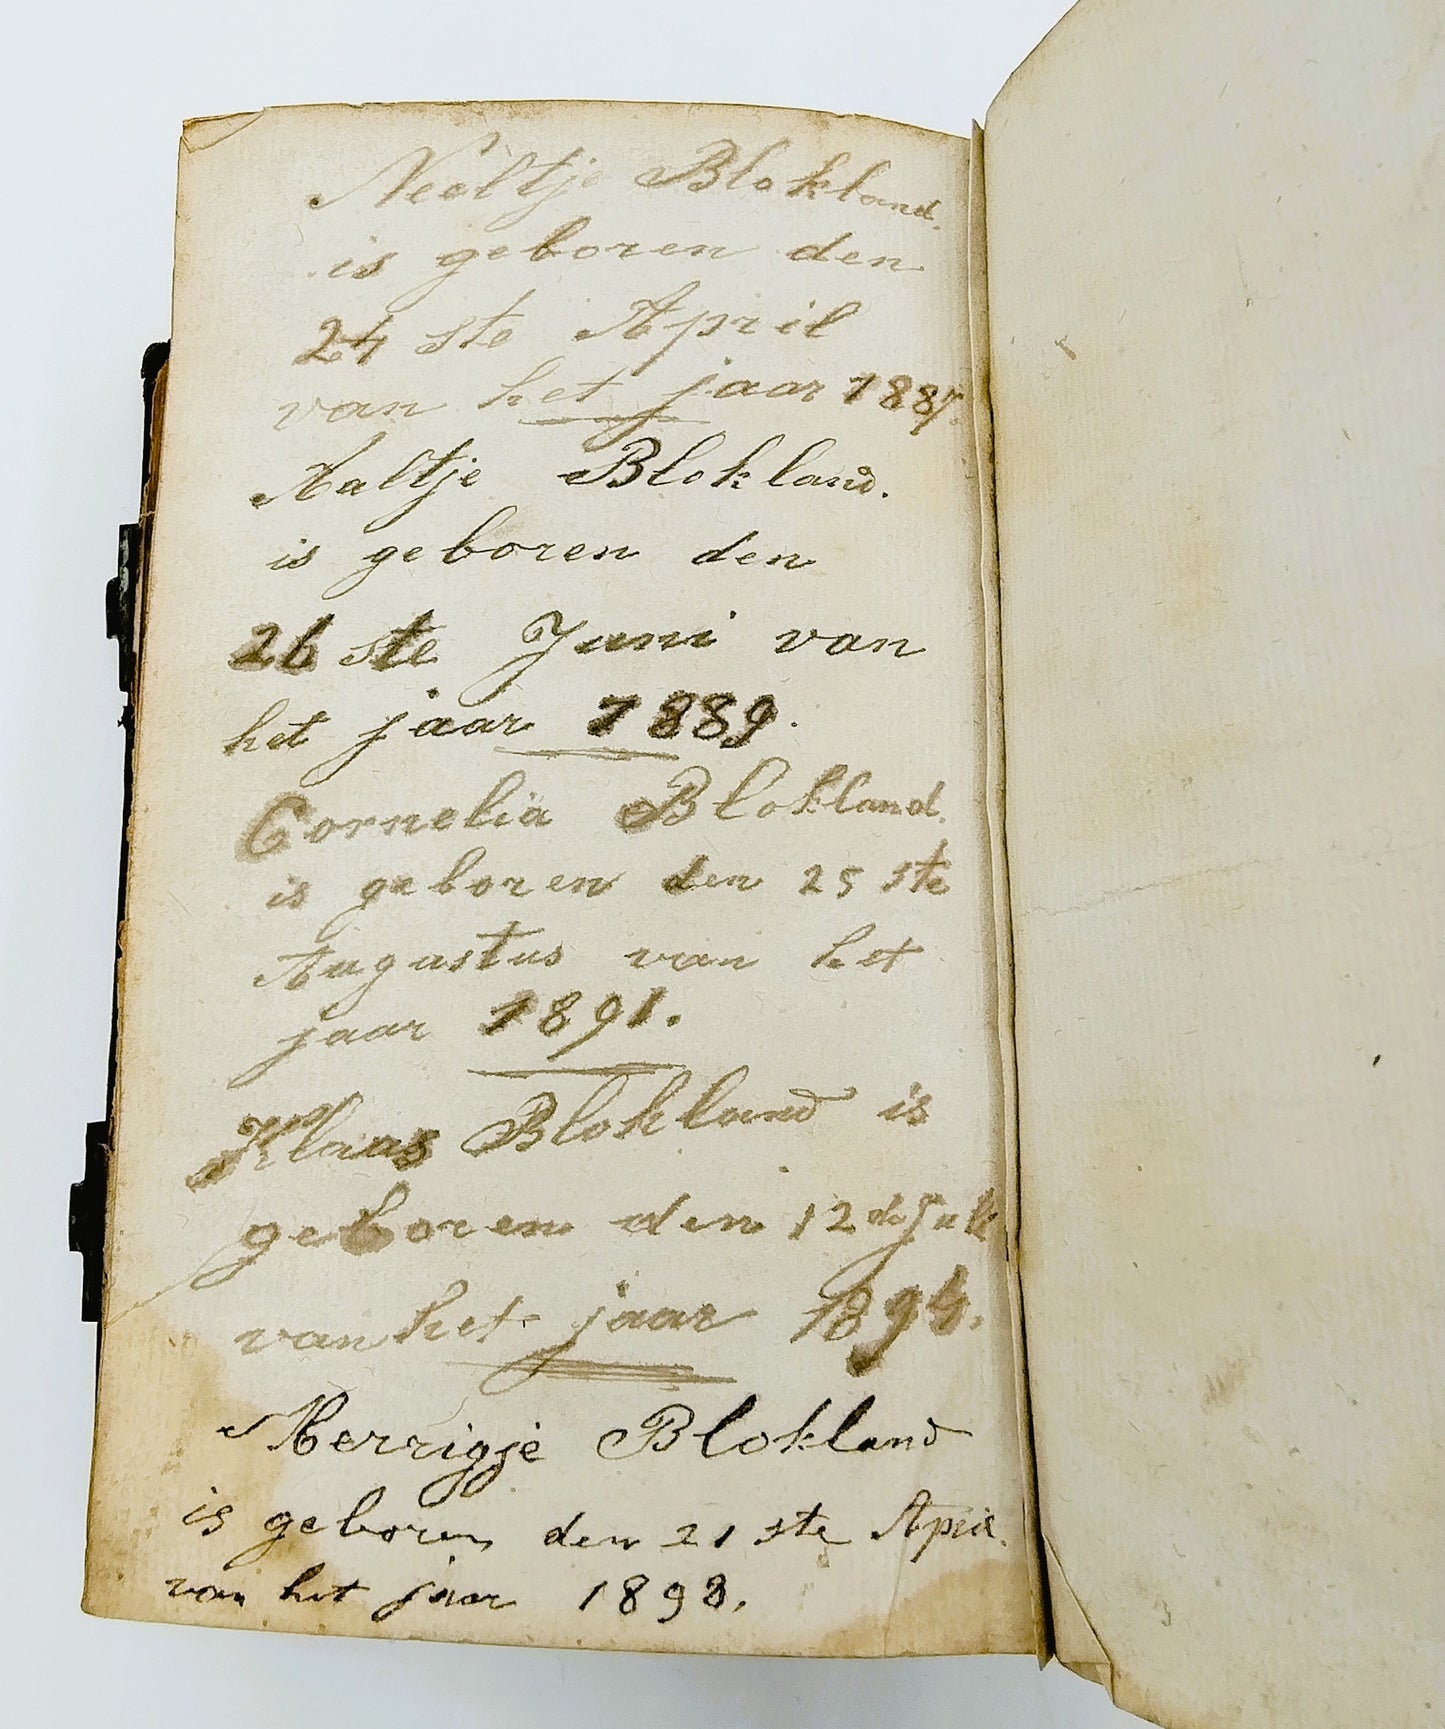 Neeltje Blokland.
is geboren den
24 ste April
van het jaar 1887.
Aaltje Blokland.
is geboren den
26 ste Juni van
het jaar 1889.
Cornelia Blokland.
is geboren den 25 ste
Augustus van het
jaar 1891.
Klaas Blokland is
geboren den 12 de Juli
van het jaar 1894.
Merrigje Blokland
is geboren den 21 ste April.
van het jaar 1898.